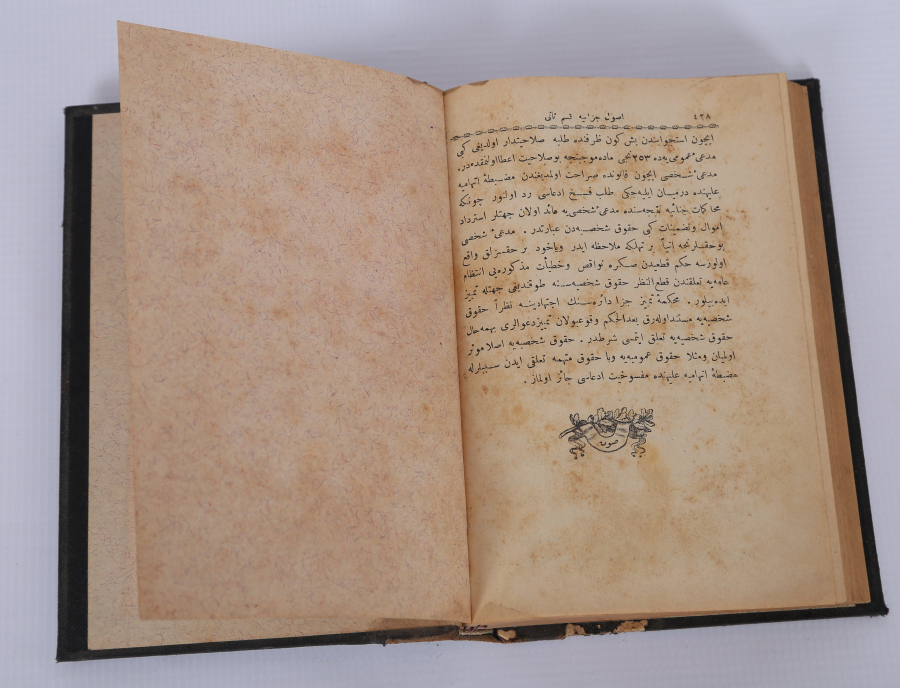 ٤٢٨ اصول جزائیه قسم ثانی
ایچون استجوابندن بش کون ظرفنده طلبه صلاحیتدار اولدیغی کبی
مدعیٔ عمومی‌یه‌ده ۲۵۳ نجی ماده‌موجبنجه بوصلاحیت اعطااولنمقده‌در.
مدعیٔ شخصی ایچون قانونده صراحت اولمدیغندن مضبطهٔ اتهامیه
علیهنده درمیان ایلیه‌جکی طلب فسخ ادعاسی رد اولنور چونکه
محاکمات جنائیه نتیجه‌سنده مدعیٔ شخصی‌یه عائد اولان جهتلر استرداد
اموال وتضمینات کبی حقوق شخصیه‌دن عبارتدر . مدعیٔ شخصی
بوحقلرنجه بر تهلکه ملاحظه ایدر ویاخود بر حقسزلق واقع
اولورسه حکم قطعیدن صکره نواقص وخطیأت مذکوره‌یی انتظام
عامه‌یه تعلقندن قطع‌النظر حقوق شخصیه‌سنه طوقندیغی جهتله تمییز
ایده‌بیلور . محکمهٔ تمییز جزا دائره‌سنك اجتهادینه نظراً حقوق
شخصیه‌یه مستنداوله‌رق بعدالحکم وقوعبولان تمییزدعوالری بهمه‌حال
حقوق شخصیه‌یه تعلق ایتمسی شرطدر . حقوق شخصیه‌یه اصلا مؤثر
اولمیان ومثلا حقوق عمومیه‌یه ویا حقوق متهمه تعلق ایدن سببلرله
مضبطهٔ اتهامیه علیهنده مفسوخیت ادعاسی جائز اولماز .
صوك